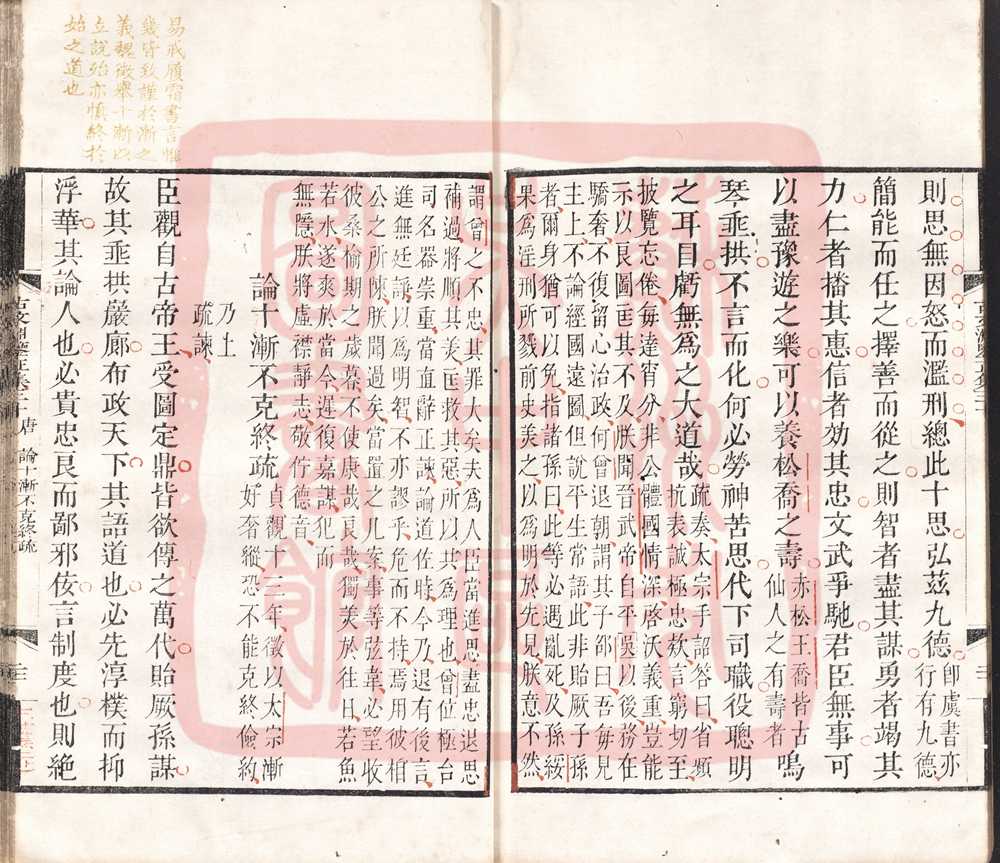 則思無因怒而濫刑總此十思弘茲九德卽虞書亦行有九德
簡能而任之擇善而從之則智者盡其謀勇者竭其
力仁者播其惠信者効其忠文武爭馳君臣無事可
以盡豫遊之樂可以養松喬之壽赤松王喬皆古仙人之有壽者鳴
琴垂拱不言而化何必勞神苦思代下司職役聰明
之耳目虧無爲之大道哉疏奏太宗手詔答曰省頻抗表誠極忠欵言窮切至
披覽忘倦每達宵分非公體國情深啓沃義重豈能
示以良圖匡其不及朕聞晉武帝自平吳以後務在
驕奢不復留心治政何曾退朝謂其子邵曰吾每見
主上不論經國遠圖但說平生常語此非貽厥子孫
者爾身猶可以免指諸孫曰此等必遇亂死及孫綏
果爲淫刑所戮前史美之以爲明於先見朕意不然
謂曾之不忠其罪大矣夫爲人臣當進思盡忠退思
補過將順其美匡救其惡所以共爲理也曾位極台
司名器崇重當直辭正諫論道佐時今乃退有後言
進無廷諍以爲明智不亦謬乎危而不持焉用彼相
公之所陳朕聞過矣當置之几案事等弦韋必望收
彼桑榆期之歲暮不使康哉良哉獨美於往日若魚
若水遂爽於當今遲復嘉謀犯而
無隱朕將虛襟靜志敬佇德音
論十漸不克終疏貞觀十三年徵以太宗漸好奢縱恐不能克終儉約
乃上
疏諫
臣觀自古帝王受圖定鼎皆欲傳之萬代貽厥孫謀
故其垂拱嚴廊布政天下其語道也必先淳樸而抑
浮華其論人也必貴忠良而鄙邪佞言制度也則絕
易戒履霜書言惟
幾皆致謹於漸之
義魏徵舉十漸以
立說殆亦愼終於
始之道也
唐 論十漸不克終疏